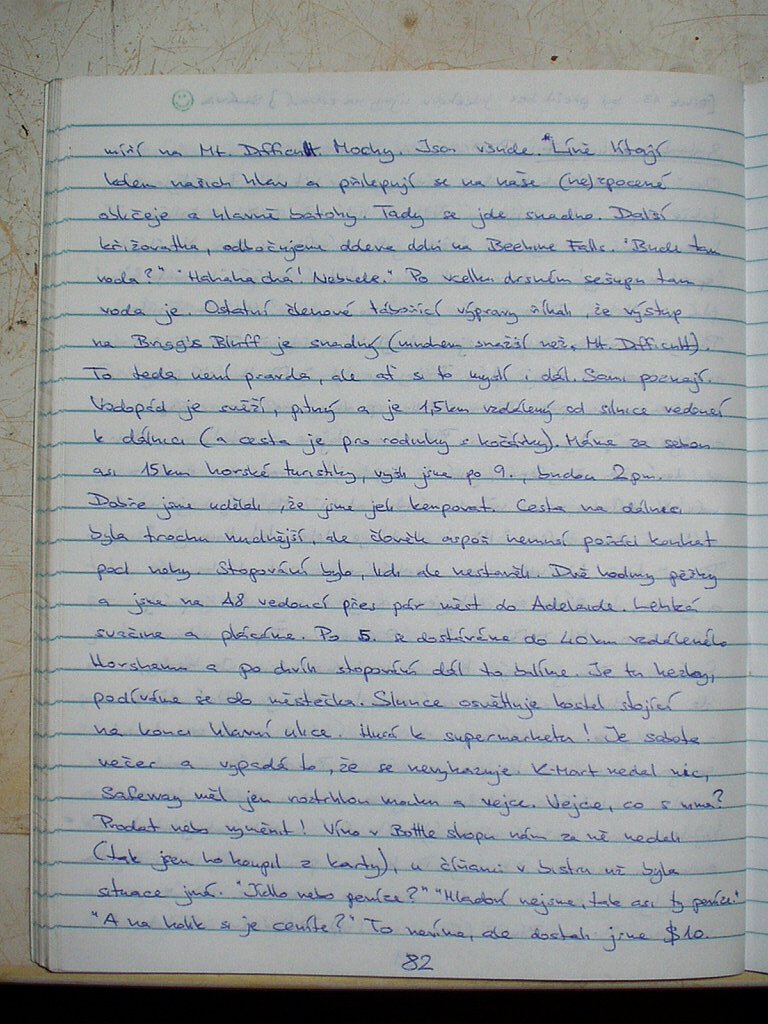 míří na Mt. Difficult. Mochy. Jsou všude. Líně lítají
kolem našich hlav a přilepují se na naše (ne)zpocené
obličeje a hlavně batohy. Tady se jde snadno. Další
křižovatka, odbočujeme doleva dolů na Beehive Falls. "Bude tam
voda?" "Hahaha chá! Nebude." Po vcelku drsném sešupu tam
voda je. Ostatní členové tábořící výpravy říkali, že výstup
na Brigg's Bluff je snadný (mnohem snažší než Mt. Difficult).
To teda není pravda, ale ať si to myslí i dál. Sami poznají.
Vodopád je svěží, pitný a je 1,5km vzdálený od silnice vedoucí
k dálnici (a cesta je pro rodinky s kočárky). Máme za sebou
asi 15km horské turistiky, vyšli jsme po 9., budou 2pm.
Dobře jsme udělali, že jsme jeli kempovat. Cesta na dálnici
byla trochu nudnější, ale člověk aspoň nemusí pořád koukat
pod nohy. Stopování bylo, lidi ale nestavěli. Dvě hodiny pěšky
a jsme na A8 vedoucí přes pár měst do Adelaide. Lehká
svačina a plácáme. Po 5. se dostáváme do 40km vzdáleného
Horshamu a po chvíli stopování dál to balíme. Je tu hezky,
podíváme se do městečka. Slunce osvětluje kostel stojící
na konci hlavní ulice. Hurá k supermarketu! Je sobota
večer a vypadá to, že se nevykazuje. K-Mart nedal nic,
Safeway měl jen roztrhlou mouku a vejce. Vejce, co s nima?
Prodat nebo vyměnit! Víno v Bottle shopu nám za ně nedali
(tak jsem ho koupil z karty), u číšani v bistru už byla
situace jiná. "Jídlo nebo peníze?" "Hladoví nejsme, tak asi ty peníze."
"A na kolik si je ceníte?" To nevíme, ale dostali jsme $10.
82